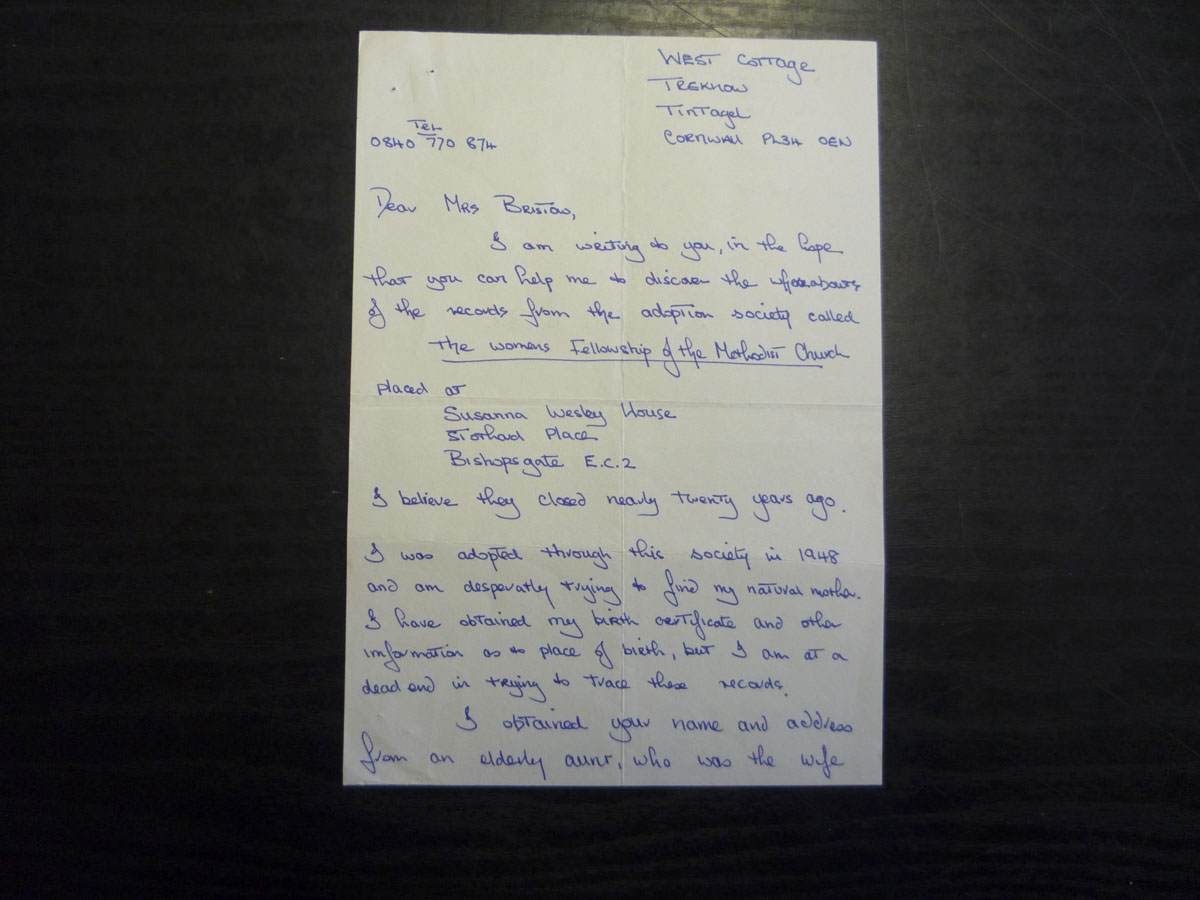 WEST COTTAGE
TREKNOW
TINTAGEL
CORNWALL PL34 0EN
TEL
0840 770 874
Dear Mrs Bristow,
I am writing to you, in the hope
that you can help me to discover the whereabouts
of the records from the adoption society called
The womens Fellowship of the Methodist Church
placed at
Susanna Wesley House
Place
Bishopsgate E.C.2
I believe they closed nearly twenty years ago.
I was adopted through this society in 1948
and am desperatly trying to find my natural mother.
I have obtained my birth certificate and other
information as to place of birth, but I am at a
dead end in trying to trace these records.
I obtained your name and address
from an elderly aunt, who was the wife